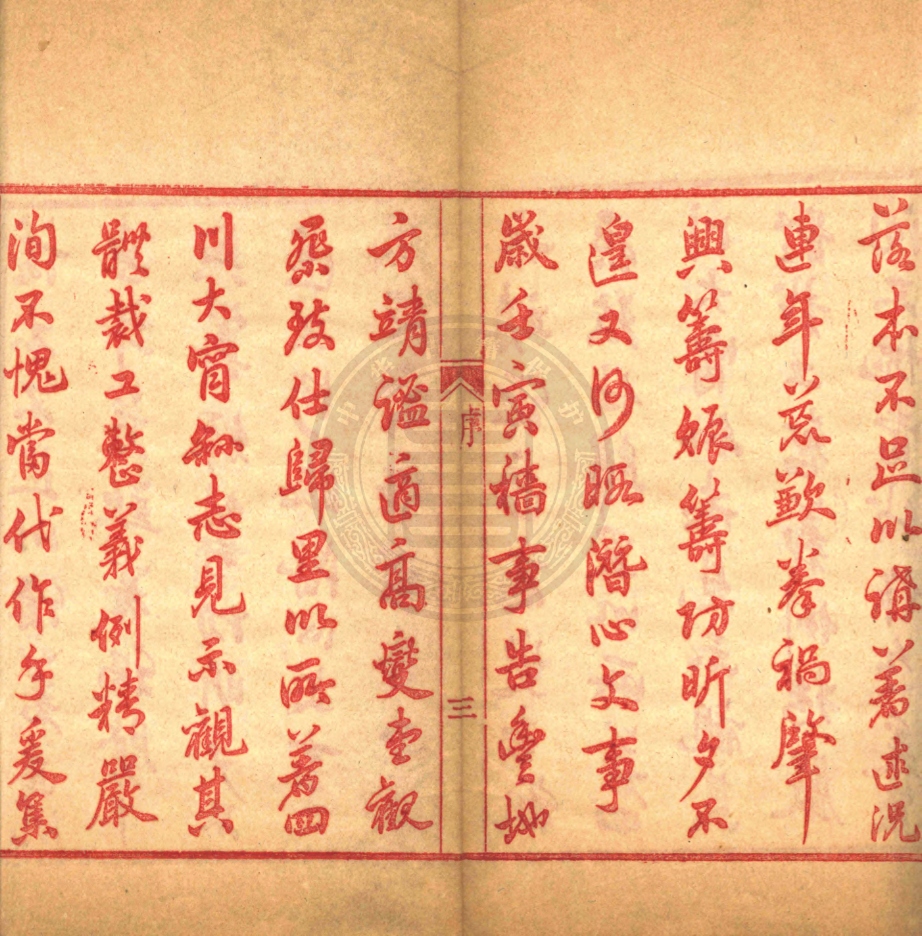 落本不足以講著述況
連年荒歉拳禍肇
興籌賑籌防昕夕不
遑又何暇潛心文事
歲壬寅穡事告豐地
序
三
方靖謐適高燮堂觀
察致仕歸里以所著四
川大甯縣志見示觀其
體裁工整義例精嚴
洵不愧當代作手爰集